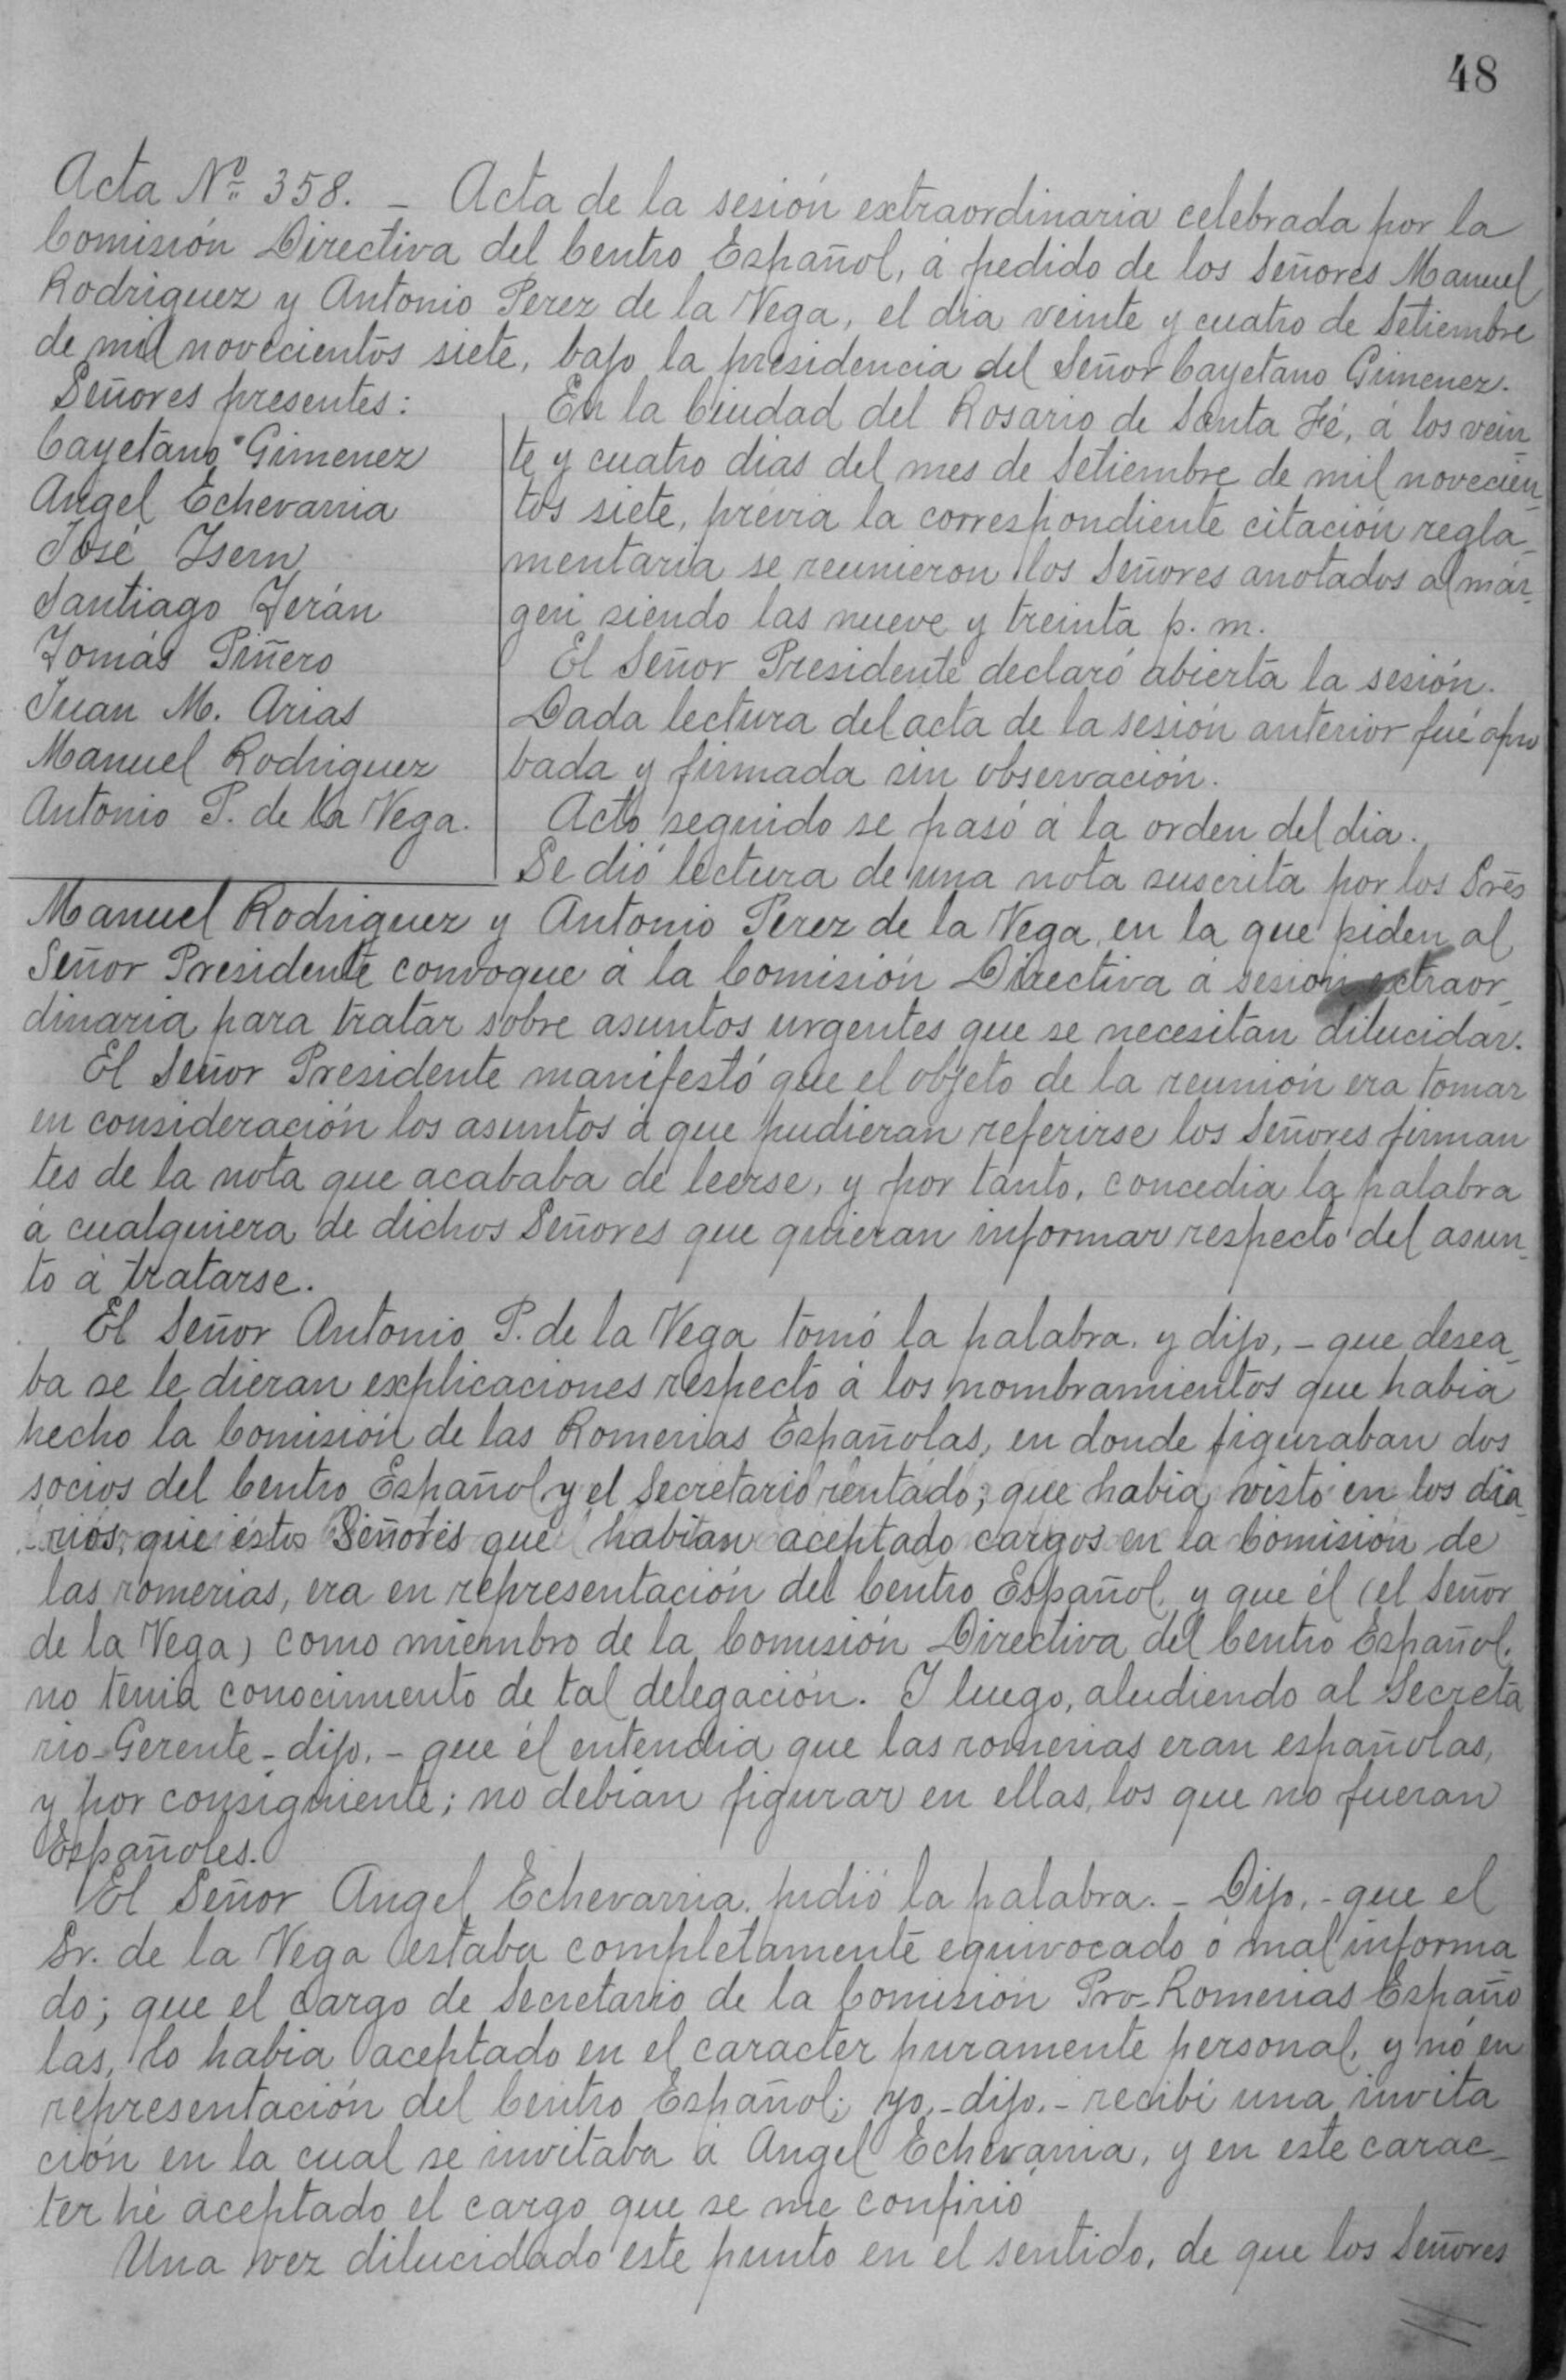 48
Acta Nº 358. - Acta de la sesión extraordinaria celebrada por la
Comisión Directiva del Centro Español, á pedido de los Señores Manuel
Rodriguez y Antonio Perez de la Vega, el dia veinte y cuatro de Setiembre
de mil novecientos siete, bajo la presidencia del Señor Cayetano Gimenez.
Señores presentes:
Cayetano Gimenez
Angel Echevarria
José Isern
Santiago Terán
Tomás Piñero
Juan M. Arias
Manuel Rodriguez
Antonio P. de la Vega.
En la Ciudad del Rosario de Santa Fé, á los vein_
te y cuatro dias del mes de Setiembre de mil novecien_
tos siete, prévia la correspondiente citación regla_
mentaria se reunieron los Señores anotados al már_
gen siendo las nueve y treinta p. m.
El Señor Presidente declaró abierta la sesión.
Dada lectura del acta de la sesión anterior fué apro
bada y firmada sin observación.
Acto seguido se pasó á la orden del dia.
Se dió lectura de una nota suscrita por los Srēs
Manuel Rodriguez y Antonio Perez de la Vega, en la que piden al
Señor Presidente convoque á la Comisión Directiva á sesión extraor_
dinaria para tratar sobre asuntos urgentes que se necesitan dilucidar.
El Señor Presidente manifestó que el objeto de la reunión era tomar
en consideración los asuntos á que pudieran referirse los Señores firman
tes de la nota que acababa de leerse, y por tanto, concedia la palabra
á cualquiera de dichos Señores que quieran informar respecto del asun_
to á tratarse.
El Señor Antonio P. de la Vega tomó la palabra, y dijo, - que desea_
ba se le dieran explicaciones respecto á los nombramientos que habia
hecho la Comisión de las Romerias Españolas, en donde figuraban dos
socios del Centro Español y el Secretario rentado; que habia visto en los dia_
rios, que éstos Señores que habian aceptado cargos en la Comisión de
las romerias, era en representación del Centro Español, y que él (el Señor
de la Vega) como miembro de la Comisión Directiva del Centro Español,
no tenia conocimiento de tal delegación. I luego, aludiendo al Secreta
rio-Gerente - dijo, - que él entendia que las romerias eran españolas,
y por consiguiente; no debian figurar en ellas, los que no fueran
Españoles.
El Señor Angel Echevarria, pidió la palabra. - Dijo, - que el
Sr. de la Vega estaba completamente equivocado ó mal informa
do; que el cargo de Secretario de la Comisión Pro-Romerias Españo
las, lo habia aceptado en el caracter puramente personal, y nó en
representación del Centro Español; yo, - dijo, - recibi una invita
ción en la cual se invitaba á Angel Echevarria, y en este carac_
ter hé aceptado el cargo que se me confirió
Una vez dilucidado este punto en el sentido, de que los Señores